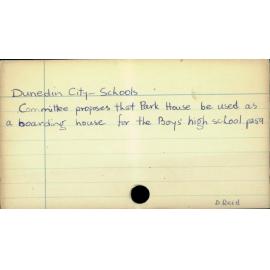 Dunedin City - Schools
Committee proposes that Park House be used as
a boarding house for the Boys' high school. p259
D. Reid